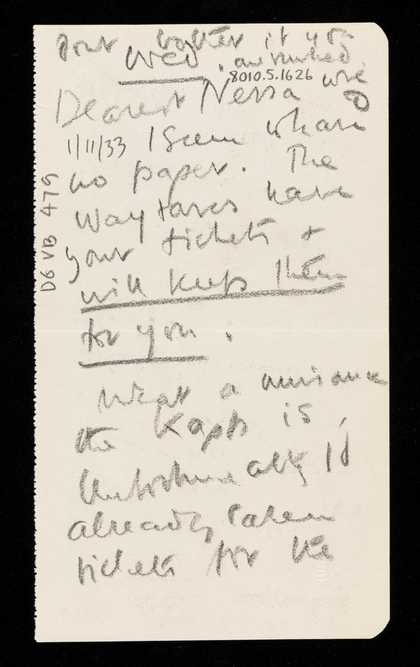 Dont bother if you
Wed. are rushed.
8010.5.1626
Dearest Nessa
1/11/33 I seem to have
no paper. The
Wayfarers have
your tickets &
will keep them
for you.
What a nuisance
the Kapp is,
Unfortunately I'd
already taken
tickets for the
D6 VB 475